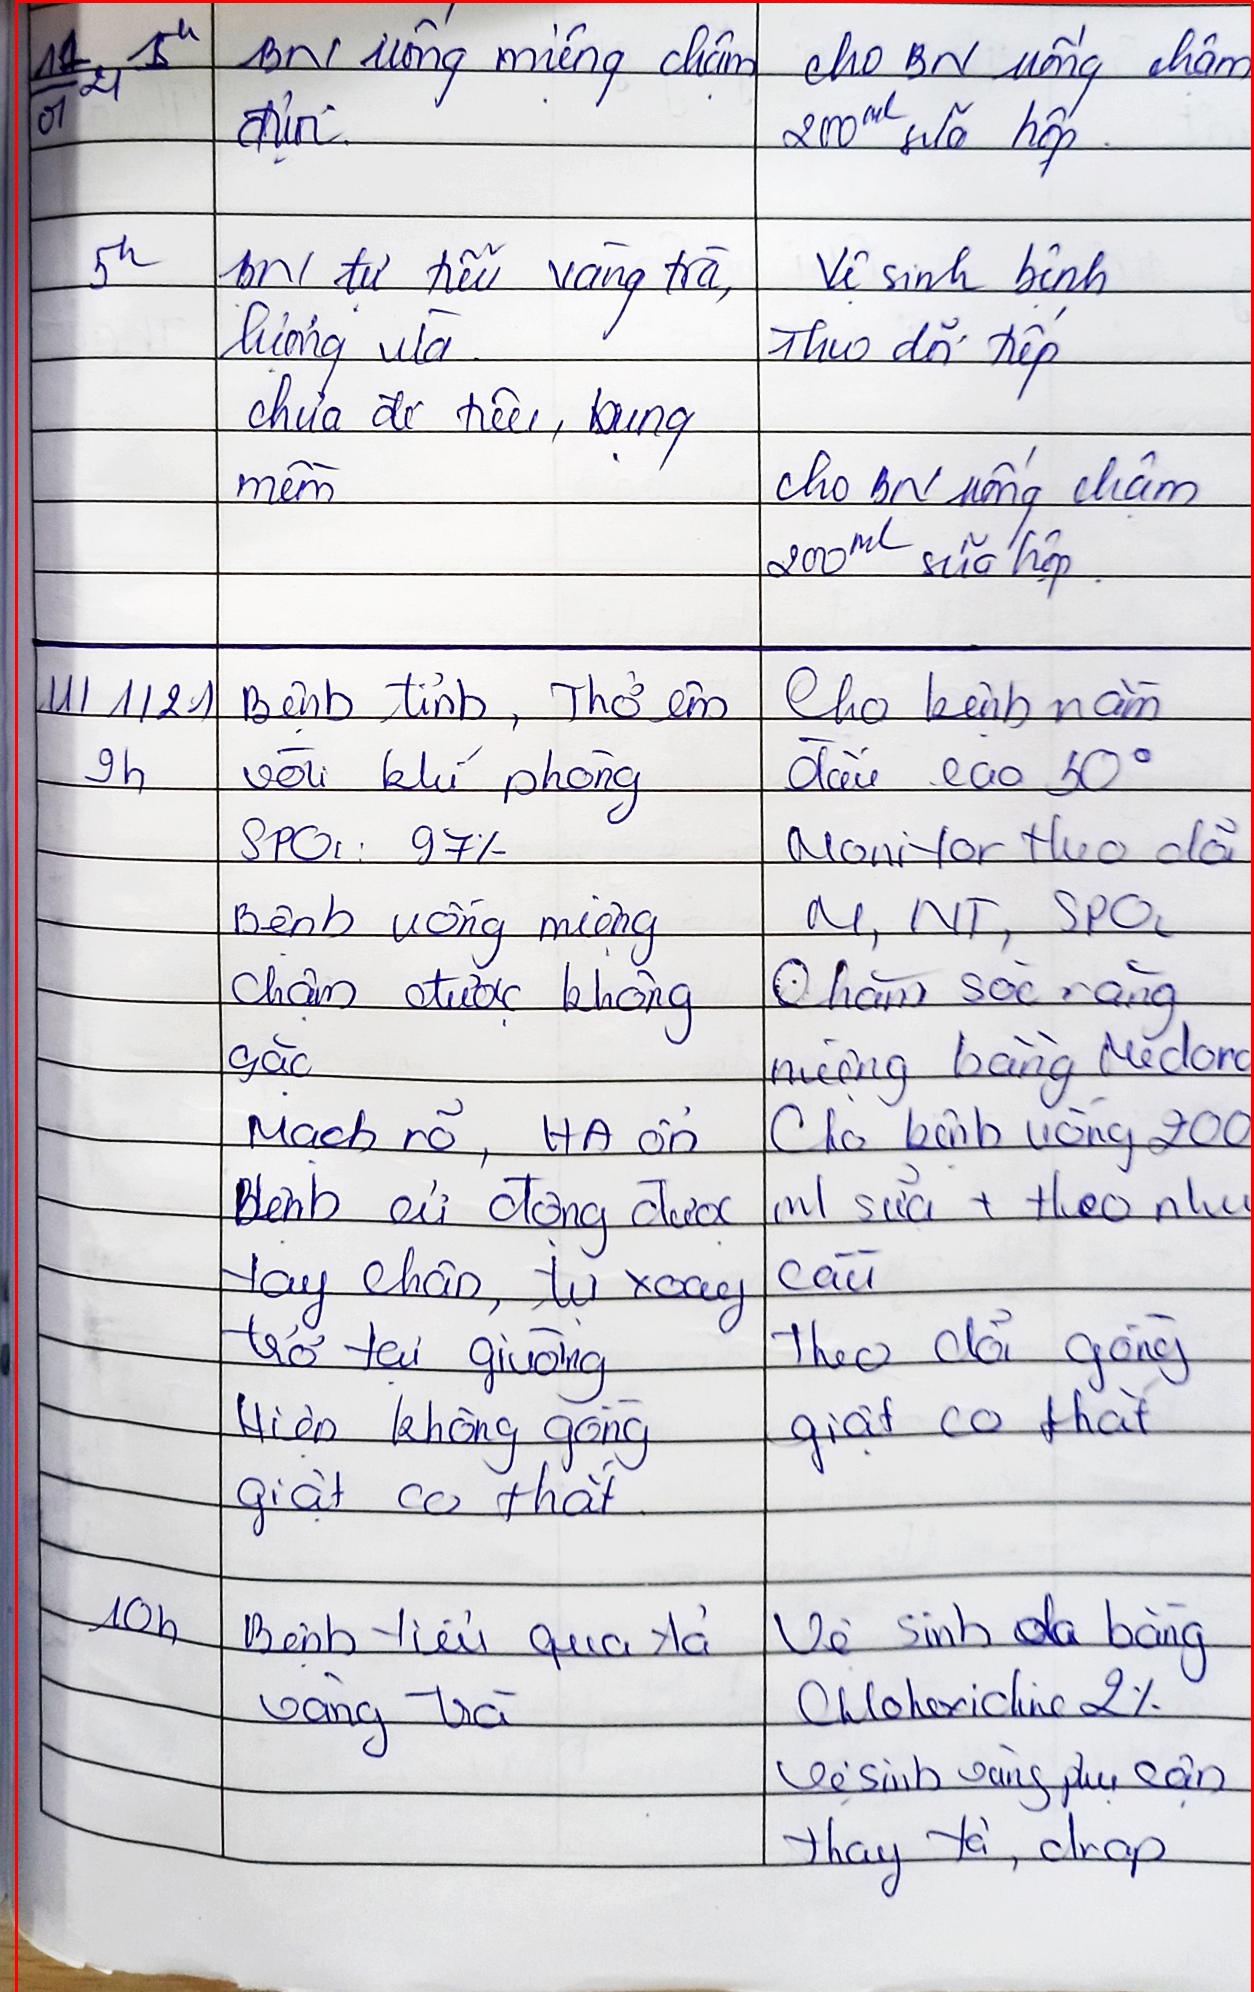 11/01 21 5h
BN uống miệng chậm
được.
cho BN uống chậm
200ml sữa hộp.
5h
BN tự tiểu vàng trà,
lượng vừa.
chưa đi tiêu, bụng
mềm
Vệ sinh bệnh
Theo dõi tiếp
cho BN uống chậm
200ml sữa hộp.
11/1/21
9h
Bệnh tỉnh, Thở êm
với khí phòng
SPO2: 97%
Bệnh uống miệng
chậm được không
sặc
Mạch rõ, HA ổn
Bệnh cử động được
tay chân, tự xoay
trở tại giường
Hiện không gồng
giật co thắt
Cho bệnh nằm
đầu cao 30°
Monitor theo dõi
M, NT, SPO2
Chăm sóc răng
miệng bằng Medoral
Cho bệnh uống 200
ml sữa + theo nhu
cầu
theo dõi gồng
giật co thắt
10h
Bệnh tiểu qua tả
vàng trà
Vệ sinh da bằng
Chlohexidine 2%
Vệ sinh vùng phụ cận
thay tả, drap